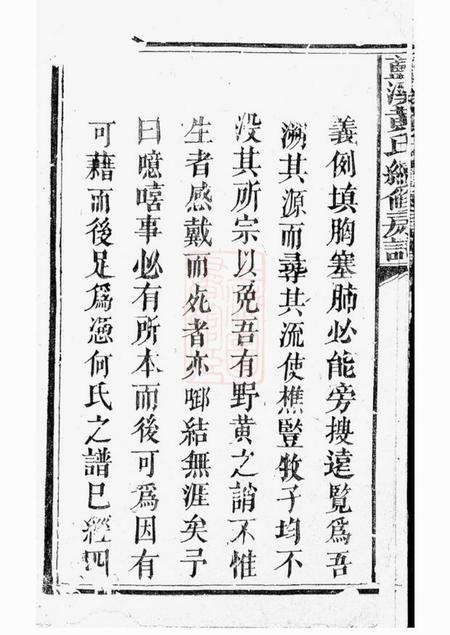 義例填胸塞肺必能旁搜遠覽爲吾
溯其源而尋其流使樵豎牧子均不
没其所宗以免吾有野黄之誚不惟
生者感戴而死者亦啣結無涯矣予
曰噫嘻事必有所本而後可爲因有
可藉而後足爲憑何氏之譜巳經四
黄氏續修房譜